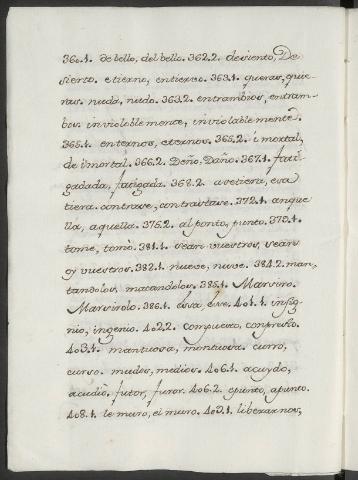 360.1. de bello, del bello. 362.2. desiento, De
sierto. etierno, entierro. 363.1. queras, quie
ras. nuda, nudo. 363.2. entrambios, entram-
bos. invioloblemente, inviolablemente.
365.1. enternos, eternos. 365.2. i mortal,
de imortal. 366.2. Deño, Daño. 367.1. fati
gadada, fatigada. 368.2. avetiera, esa
tiera. contrave, contrastare. 372.1. anque
lla, aquella. 375.2. alponto, punto. 379.1.
tome, tomò. 381.1. sean vuestros, sean
oy vuestros. 382.1. nueve, nuve. 384.2. man,
tandolos, matandolos. 385.1. Marviro.
Marvirolo. 386.1. essa, esse. 401.1. insig
nio, ingenio. 402.2. compuexto, conpresto.
403.1. mantuosa, montuosa. curro,
curso. mudos, medios. 406.1. acuydo,
acudio. futor, furor. 406.2. epunto, apunto.
408.1. le muro, el muro. 409.1. liberarnos,